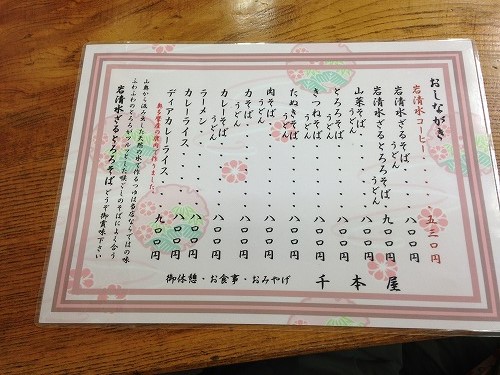 おしながき
岩清水コーヒー・・・・五三〇円
岩清水ざるそば
うどん・・・・八〇〇円
岩清水ざるとろろそば
うどん・九〇〇円
山菜そば
うどん・・・・八〇〇円
とろろそば
うどん・・・・八〇〇円
きつねそば
うどん・・・・八〇〇円
たぬきそば
うどん・・・・八〇〇円
肉そば
うどん・・・・八〇〇円
力そば
うどん・・・・八〇〇円
カレーそば
うどん・・・・八〇〇円
ラーメン・・・・八〇〇円
カレーライス・・・・八〇〇円
ディアカレーライス・・・・九〇〇円
奥多摩産の鹿肉で作りました。
山奥から汲み出した天然の水で作るつゆは当店ならではの味
ふわふわのとろろがツルッとした喉ごしのそばによく合う
岩清水ざるとろろそば どうぞ御賞味下さい
御休憩・お食事・おみやげ 千本屋